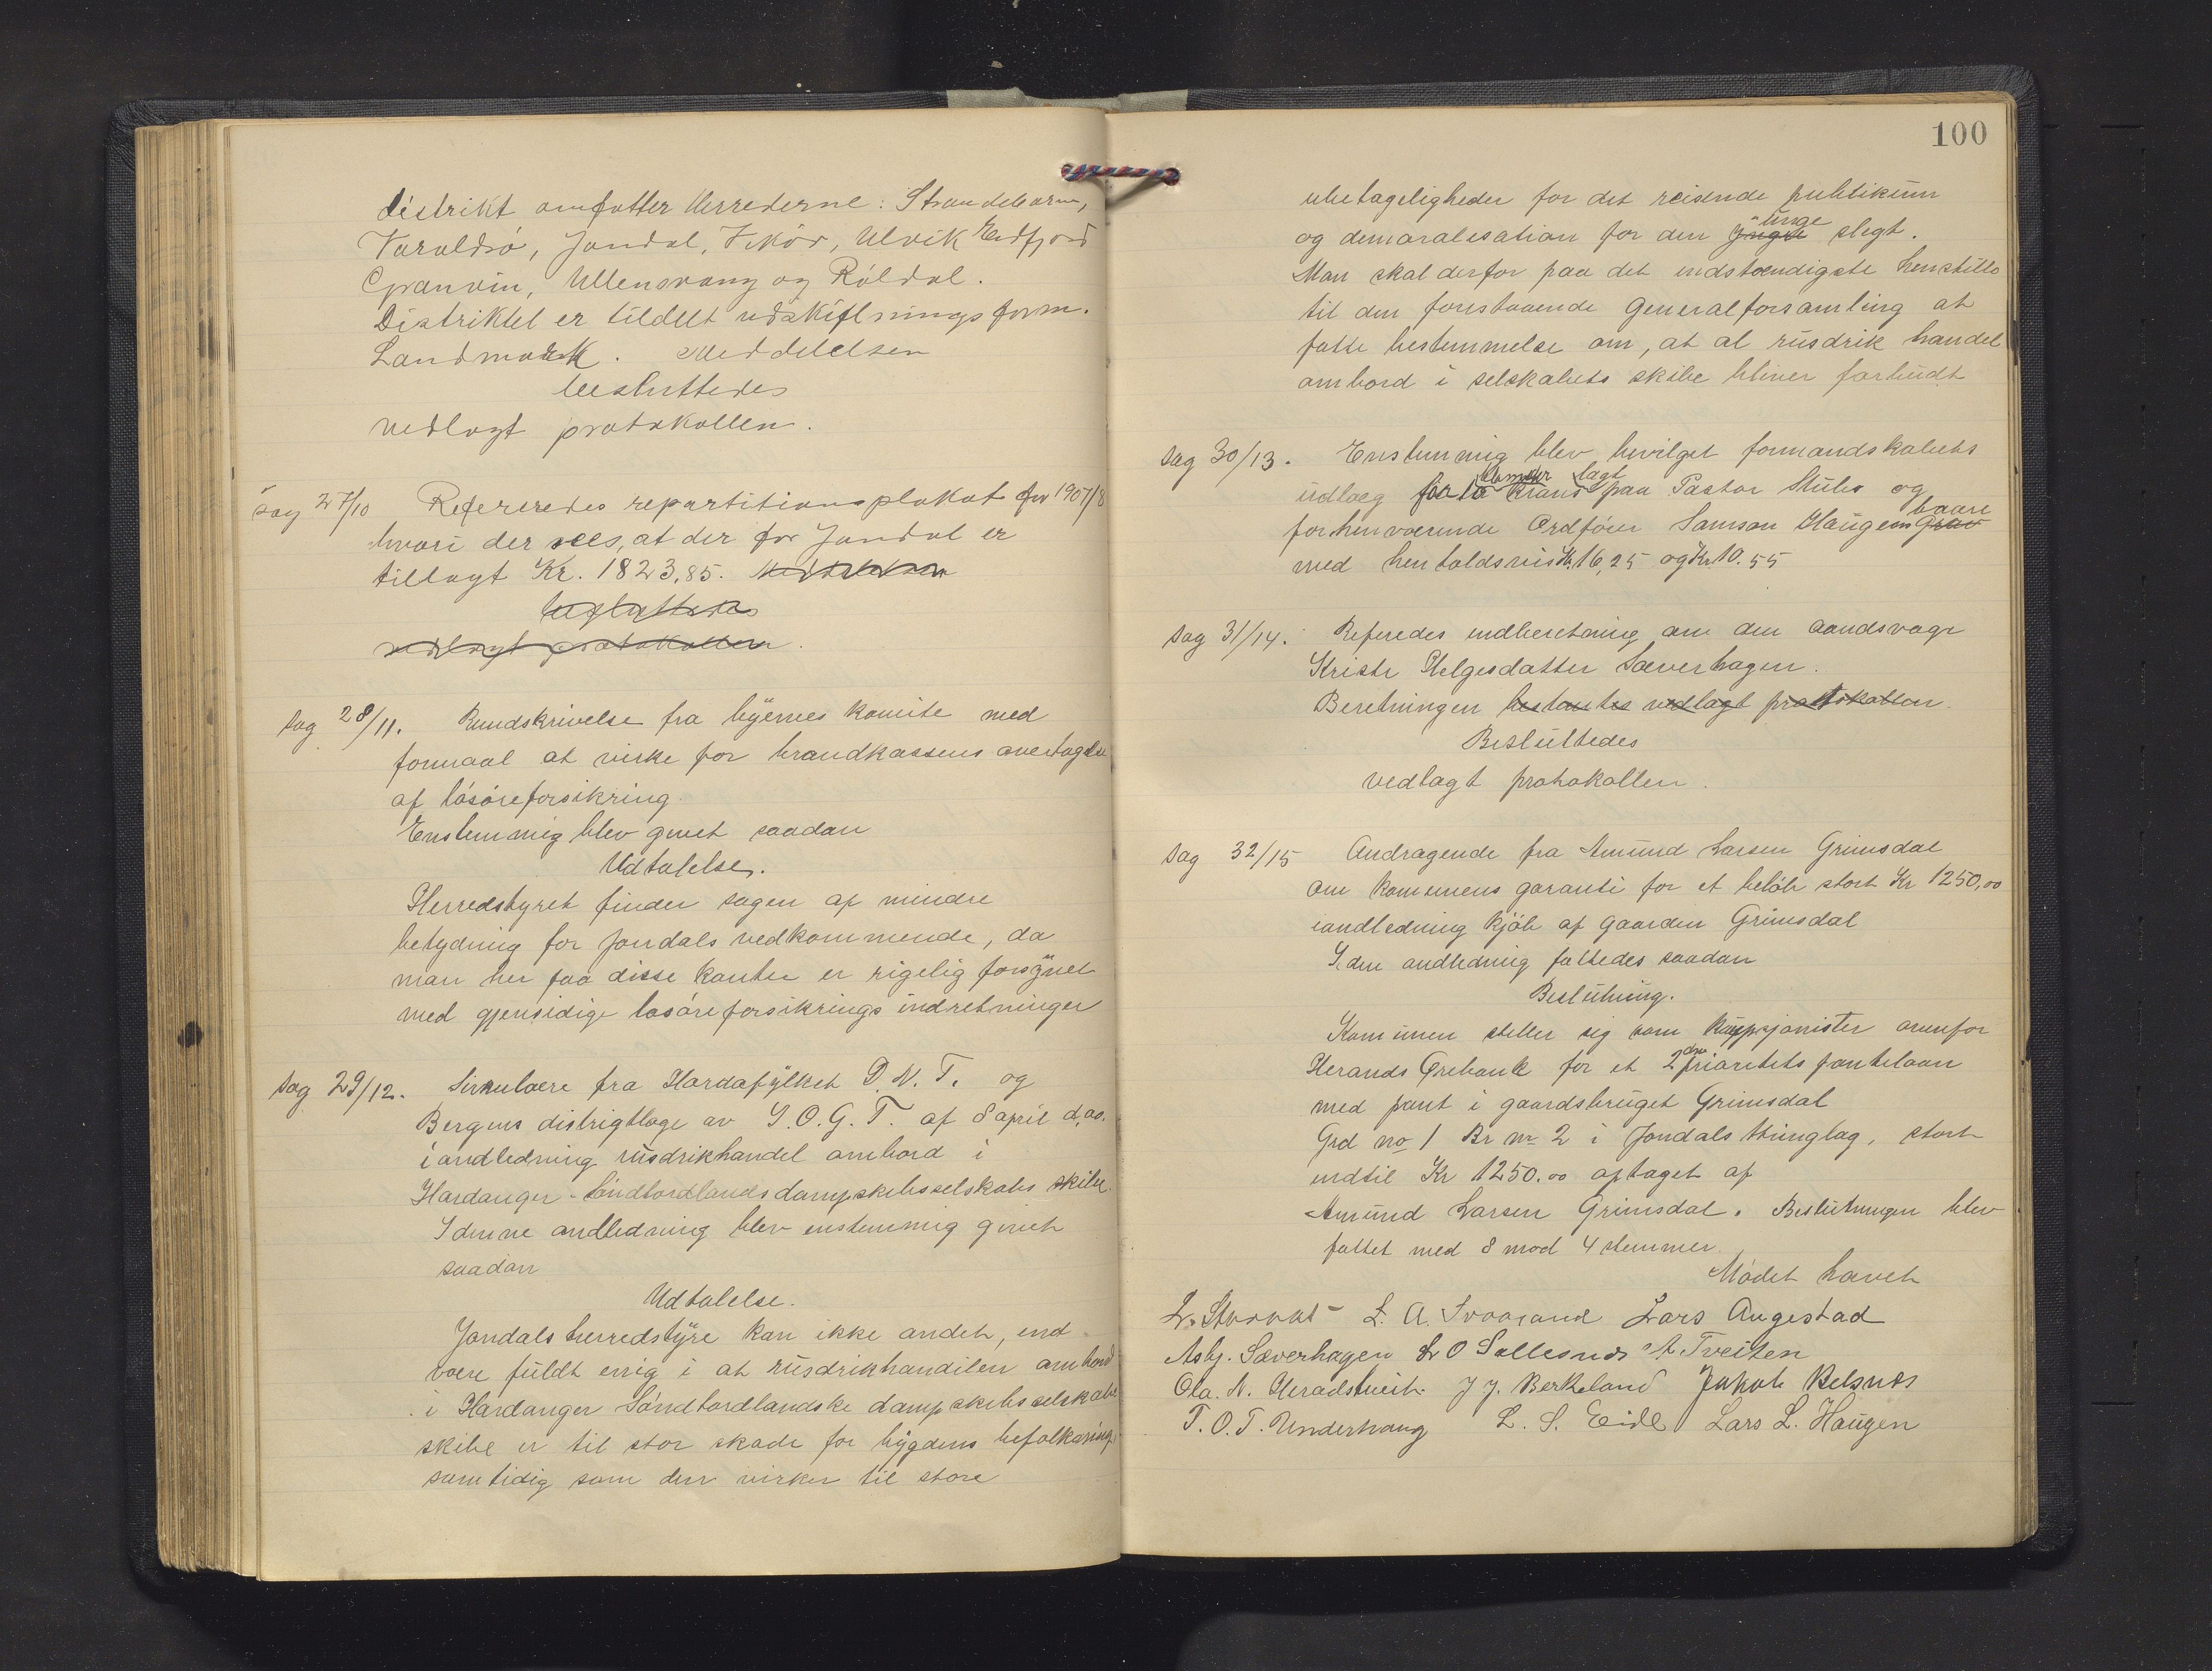 distrikt omfatter Herrederne: Strandebarm,
Varaldsö, Jondal, Vikör, Ulvik Eidfjord
Granvin, Ullensvang og Röldal.
Distriktet er tildelt udskiftningsform.
Landmark. Meddelelsen
besluttedes
vedlagt protokollen.
Sag 27/10 Refereredes repartitionsplakat for 1907/8
hvori der sees, at der for Jondal er
tillagt Kr. 1823,85. Meddelelsen
besluttedes
vedlagt protokollen.
Sag 28/11. Rundskrivelse fra byernes komite med
formaal at virke for brandkassens overtagelse
af lösöreforsikring.
Enstemmig blev givet saadan
Udtalelse.
Herredstyret finder sagen af mindre
betydning for Jondals vedkommende, da
man her paa disse kanter er rigelig forsynet
med gjensidige lösöreforsikrings indretninger
Sag 29/12. Sirkulære fra Hardafylket D. N. T. og
Bergens distrigtloge av I.O.G.T. af 8 april d.as.
i andledning rusdrikhandel ombord i
Hardanger-Söndhordlands dampskibsselskabs skibe.
I denne andledning blev enstemmig givet
saadan
Udtalelse.
Jondals herredstyre kan ikke andet, end
være fuldt enig i at rusdrikhandelen ombord
i Hardanger Söndhordlandske dampskibsselskabs
skibe er til stor skade for bygdens befolkaning
samtidig som den virker til store
100
ubetageligheder for det reisende publikum
og demoralisation for den yngre unge slegt.
Man skal derfor paa det indstændigste henstille
til den forestaaende generalforsamling at
fatte bestemmelse om, at al rusdrik handel
ombord i selskabets skibe bliver forbudt
Sag 30/13. Enstemmig blev bevilget formandskabets
udlæg for 10 blomster krans lagt paa Pastor Mühs og
forhenværende Ordförer Samson Haugens grav baare
med henholdsvis Kr. 16,25 og Kr. 10.55
Sag 31/14. Referedes indberetning om den aandsvage
Kriste Helgesdatter Sæverhagen.
Beretningen besluttes vedlagt protokollen.
Besluttedes
vedlagt protokollen.
Sag 32/15 Andragende fra Amund Larsen Grimsdal
om komunens garanti for et beløb stort Kr 1250,00
iandledning kjøb af gaarden Grimsdal
I den andledning fattedes saadan
Beslutning.
Komunen stiller sig som kaupsjonister ovenfor
Herands Ørebank for et 2den prioritets pantelaan
med pant i gaardsbruget Grimsdal
Grd no 1 Br nr 2 i Jondals thinglag, stort
indtil Kr 1250.00 optaget af
Amund Larsen Grimsdal. Beslutningen blev
fattet med 8 mod 4 stemmer.
Mödet hævet
L. A. Svaasand Lars Augestad
Asbj. Sæverhagen L O Sollesnes A. Tveiten
Ola. N. Heradstveit. J J. Berkeland Jakob Belsnes
T. O. T. Underhaug L. S. Eide Lars L. Haugen